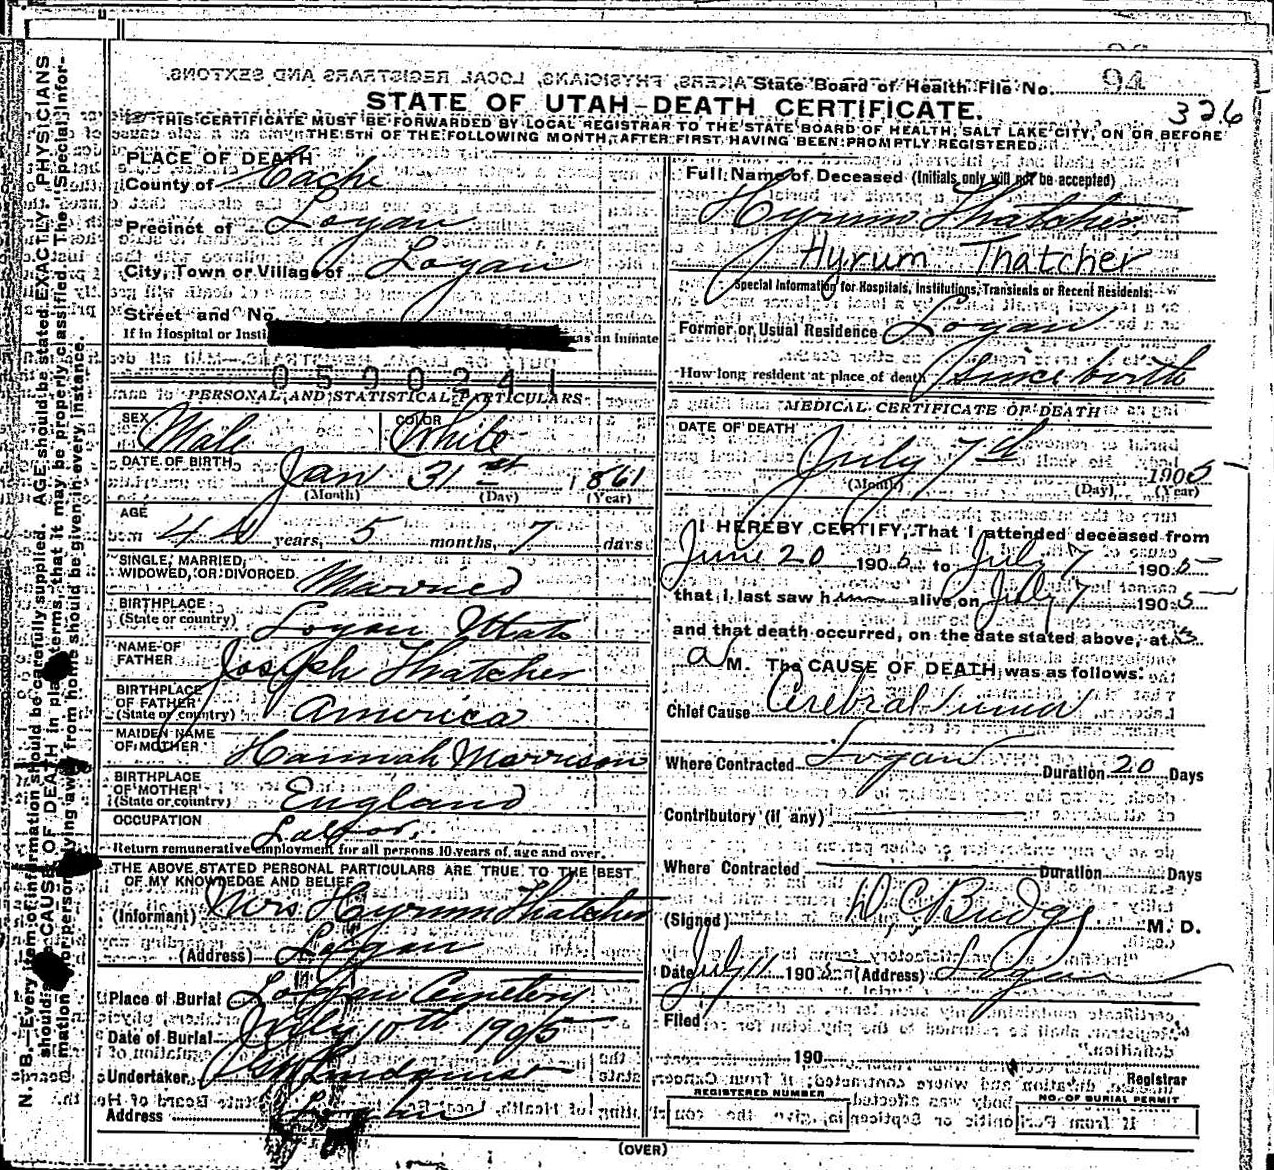 State Board of Health File No. 94
STATE OF UTAH-DEATH CERTIFICATE.
326
THIS CERTIFICATE MUST BE FORWARDED BY LOCAL REGISTRAR TO THE STATE BOARD OF HEALTH, SALT LAKE CITY, ON OR BEFORE
THE 5TH OF THE FOLLOWING MONTH, AFTER FIRST HAVING BEEN PROMPTLY REGISTERED.
PLACE OF DEATH
County of Cache
Precinct of Logan
City, Town or Village of Logan
Street and No.
If in Hospital or Insti as an Inmate
0590241
PERSONAL AND STATISTICAL PARTICULARS
SEX Male COLOR White
DATE OF BIRTH Jan. 31st 1861
(Month) (Day) (Year)
AGE 44 years, 5 months, 7 days
SINGLE, MARRIED,
WIDOWED, OR DIVORCED Married
BIRTHPLACE
(State or country) Logan Utah
NAME OF
FATHER Joseph Thatcher
BIRTHPLACE
OF FATHER
(State or country) America
MAIDEN NAME
OF MOTHER Hannah Morrison
BIRTHPLACE
OF MOTHER
(State or country) England
OCCUPATION Labor.
Return remunerative employment for all persons 10 years of age and over.
THE ABOVE STATED PERSONAL PARTICULARS ARE TRUE TO THE BEST
OF MY KNOWLEDGE AND BELIEF
(Informant) Mrs. Hyrum Thatcher
(Address) Logan
Place of Burial Logan Cemetery
Date of Burial July 10th 1905
Undertaker Lindquist
Address Logan
Full Name of Deceased (Initials only will not be accepted)
Hyrum Thatcher
Hyrum Thatcher
Special Information for Hospitals, Institutions, Transients or Recent Residents:
Former or Usual Residence Logan
How long resident at place of death Since birth
MEDICAL CERTIFICATE OF DEATH
DATE OF DEATH
July 7th 1905
(Month) (Day) (Year)
I HEREBY CERTIFY, That I attended deceased from
June 20 1905 to July 7 1905
that I last saw him alive on July 7 1905
and that death occurred, on the date stated above, at 3
a M. The CAUSE OF DEATH was as follows:
Chief Cause Cerebral Tumor
Where Contracted Logan Duration 20 Days
Contributory (if any)
Where Contracted Duration Days
(Signed) D. C. Budge M. D.
Date July 11 1905 (Address) Logan
Filed
190
Registrar
REGISTERED NUMBER
NO. OF BURIAL PERMIT
(OVER)
N. B.—Every item of information should be carefully supplied. AGE should be stated EXACTLY. PHYSICIANS
should CAUSE OF DEATH in plain terms, that it may be properly classified. The "Special Information"
for persons dying away from home should be given in every instance.